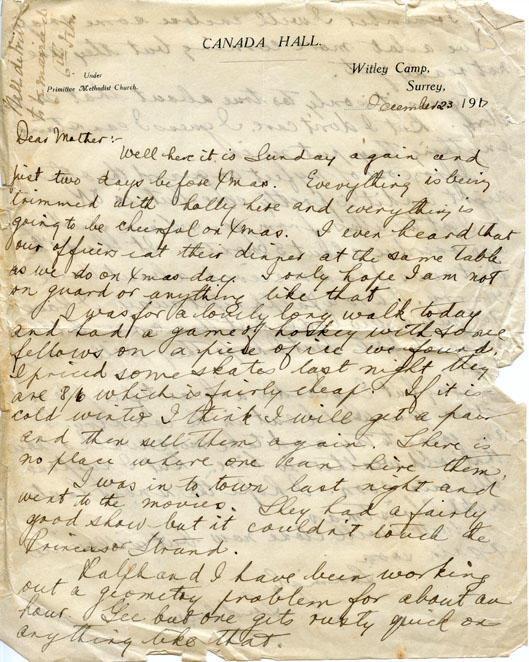 CANADA HALL.
Under
Primitive Methodist Church.
Witley Camp,
Surrey,
December 23 1917
Dear Mother:-
Well here it is Sunday again and
just two days before Xmas. Everything is being
trimmed with holly here and everything is
going to be cheerful on Xmas. I even heard that
our officers eat their dinner at the same table
as we do on Xmas day. I only hope I am not
on guard or anything like that
I was for a lovely long walk today
and had a game of hockey with some
fellows on a piece of ice we found.
I priced some skates last night they
are 8/6 which is fairly cheap. If it is
cold winter I think I will get a pair
and then sell them again. There is
no place where one can hire them.
I was in to town last night and
went to the movies. They had a fairly
good show but it couldn't touch the
Princess or Strand.
Ralph and I have been working
out a geometry problem for about an
hour. Gee but one gets rusty quick on
anything like that.